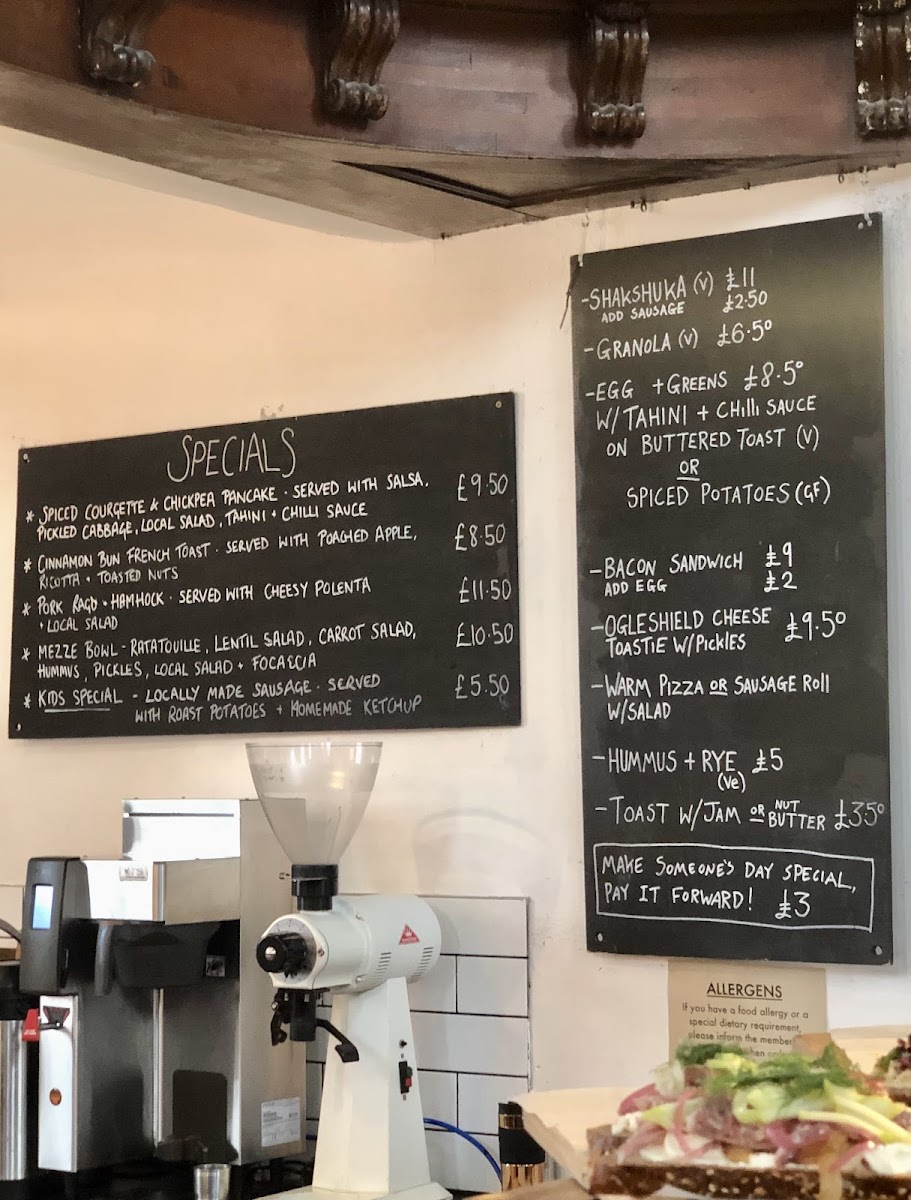 SPECIALS
* SPICED COURGETTE & CHICKPEA PANCAKE · SERVED WITH SALSA, £9.50
PICKLED CABBAGE, LOCAL SALAD, TAHINI + CHILLI SAUCE
* CINNAMON BUN FRENCH TOAST · SERVED WITH POACHED APPLE, £8.50
RICOTTA + TOASTED NUTS
* PORK RAGU + HAMHOCK · SERVED WITH CHEESY POLENTA £11.50
+ LOCAL SALAD
* MEZZE BOWL - RATATOUILLE, LENTIL SALAD, CARROT SALAD, £10.50
HUMMUS, PICKLES, LOCAL SALAD + FOCACCIA
* KIDS SPECIAL - LOCALLY MADE SAUSAGE · SERVED £5.50
WITH ROAST POTATOES + HOMEMADE KETCHUP
- SHAKSHUKA (V) £11
ADD SAUSAGE £2.50
- GRANOLA (V) £6.50
- EGG + GREENS £8.50
W/TAHINI + CHILLI SAUCE
ON BUTTERED TOAST (V)
OR
SPICED POTATOES (GF)
- BACON SANDWICH £9
ADD EGG £2
- OGLESHIELD CHEESE £9.50
TOASTIE W/PICKLES
- WARM PIZZA OR SAUSAGE ROLL
W/SALAD
- HUMMUS + RYE £5
(Ve)
- TOAST W/JAM OR NUT BUTTER £3.50
MAKE SOMEONE'S DAY SPECIAL,
PAY IT FORWARD! £3
ALLERGENS
If you have a food allergy or a
special dietary requirement,
please inform the member